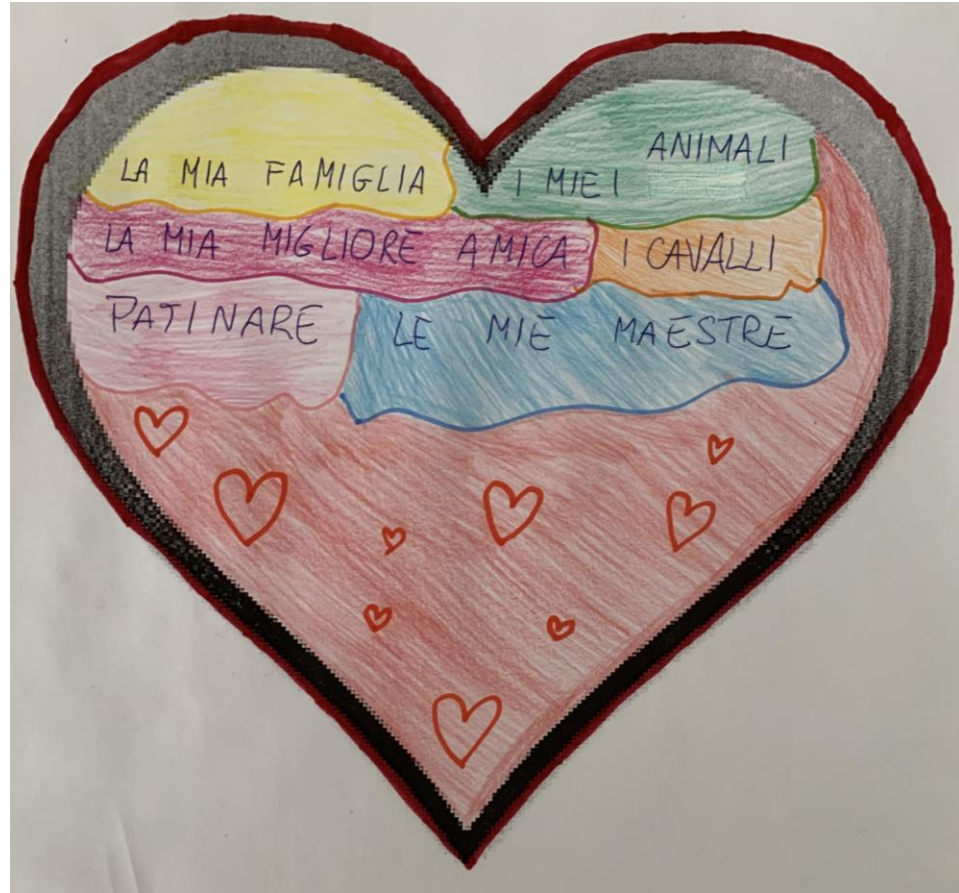 LA MIA FAMIGLIA
I MIEI ANIMALI
LA MIA MIGLIORE AMICA
I CAVALLI
PATINARE
LE MIE MAESTRE